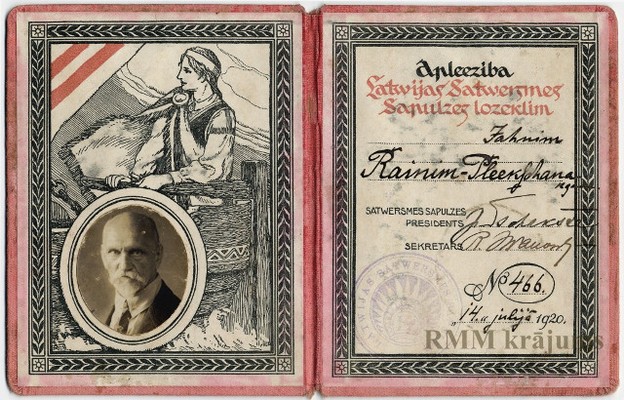 Apleeziba
Latwijas Satwersmes
Sapulzes lozeklim
Jahnim
Rainim-Pleekschana
kgm
SATWERSMES SAPULZES
PRESIDENTS
J. Tschakste
SEKRETARS
R. Iwanow
№ 466.
"14." julijā 1920.
RMM krājums